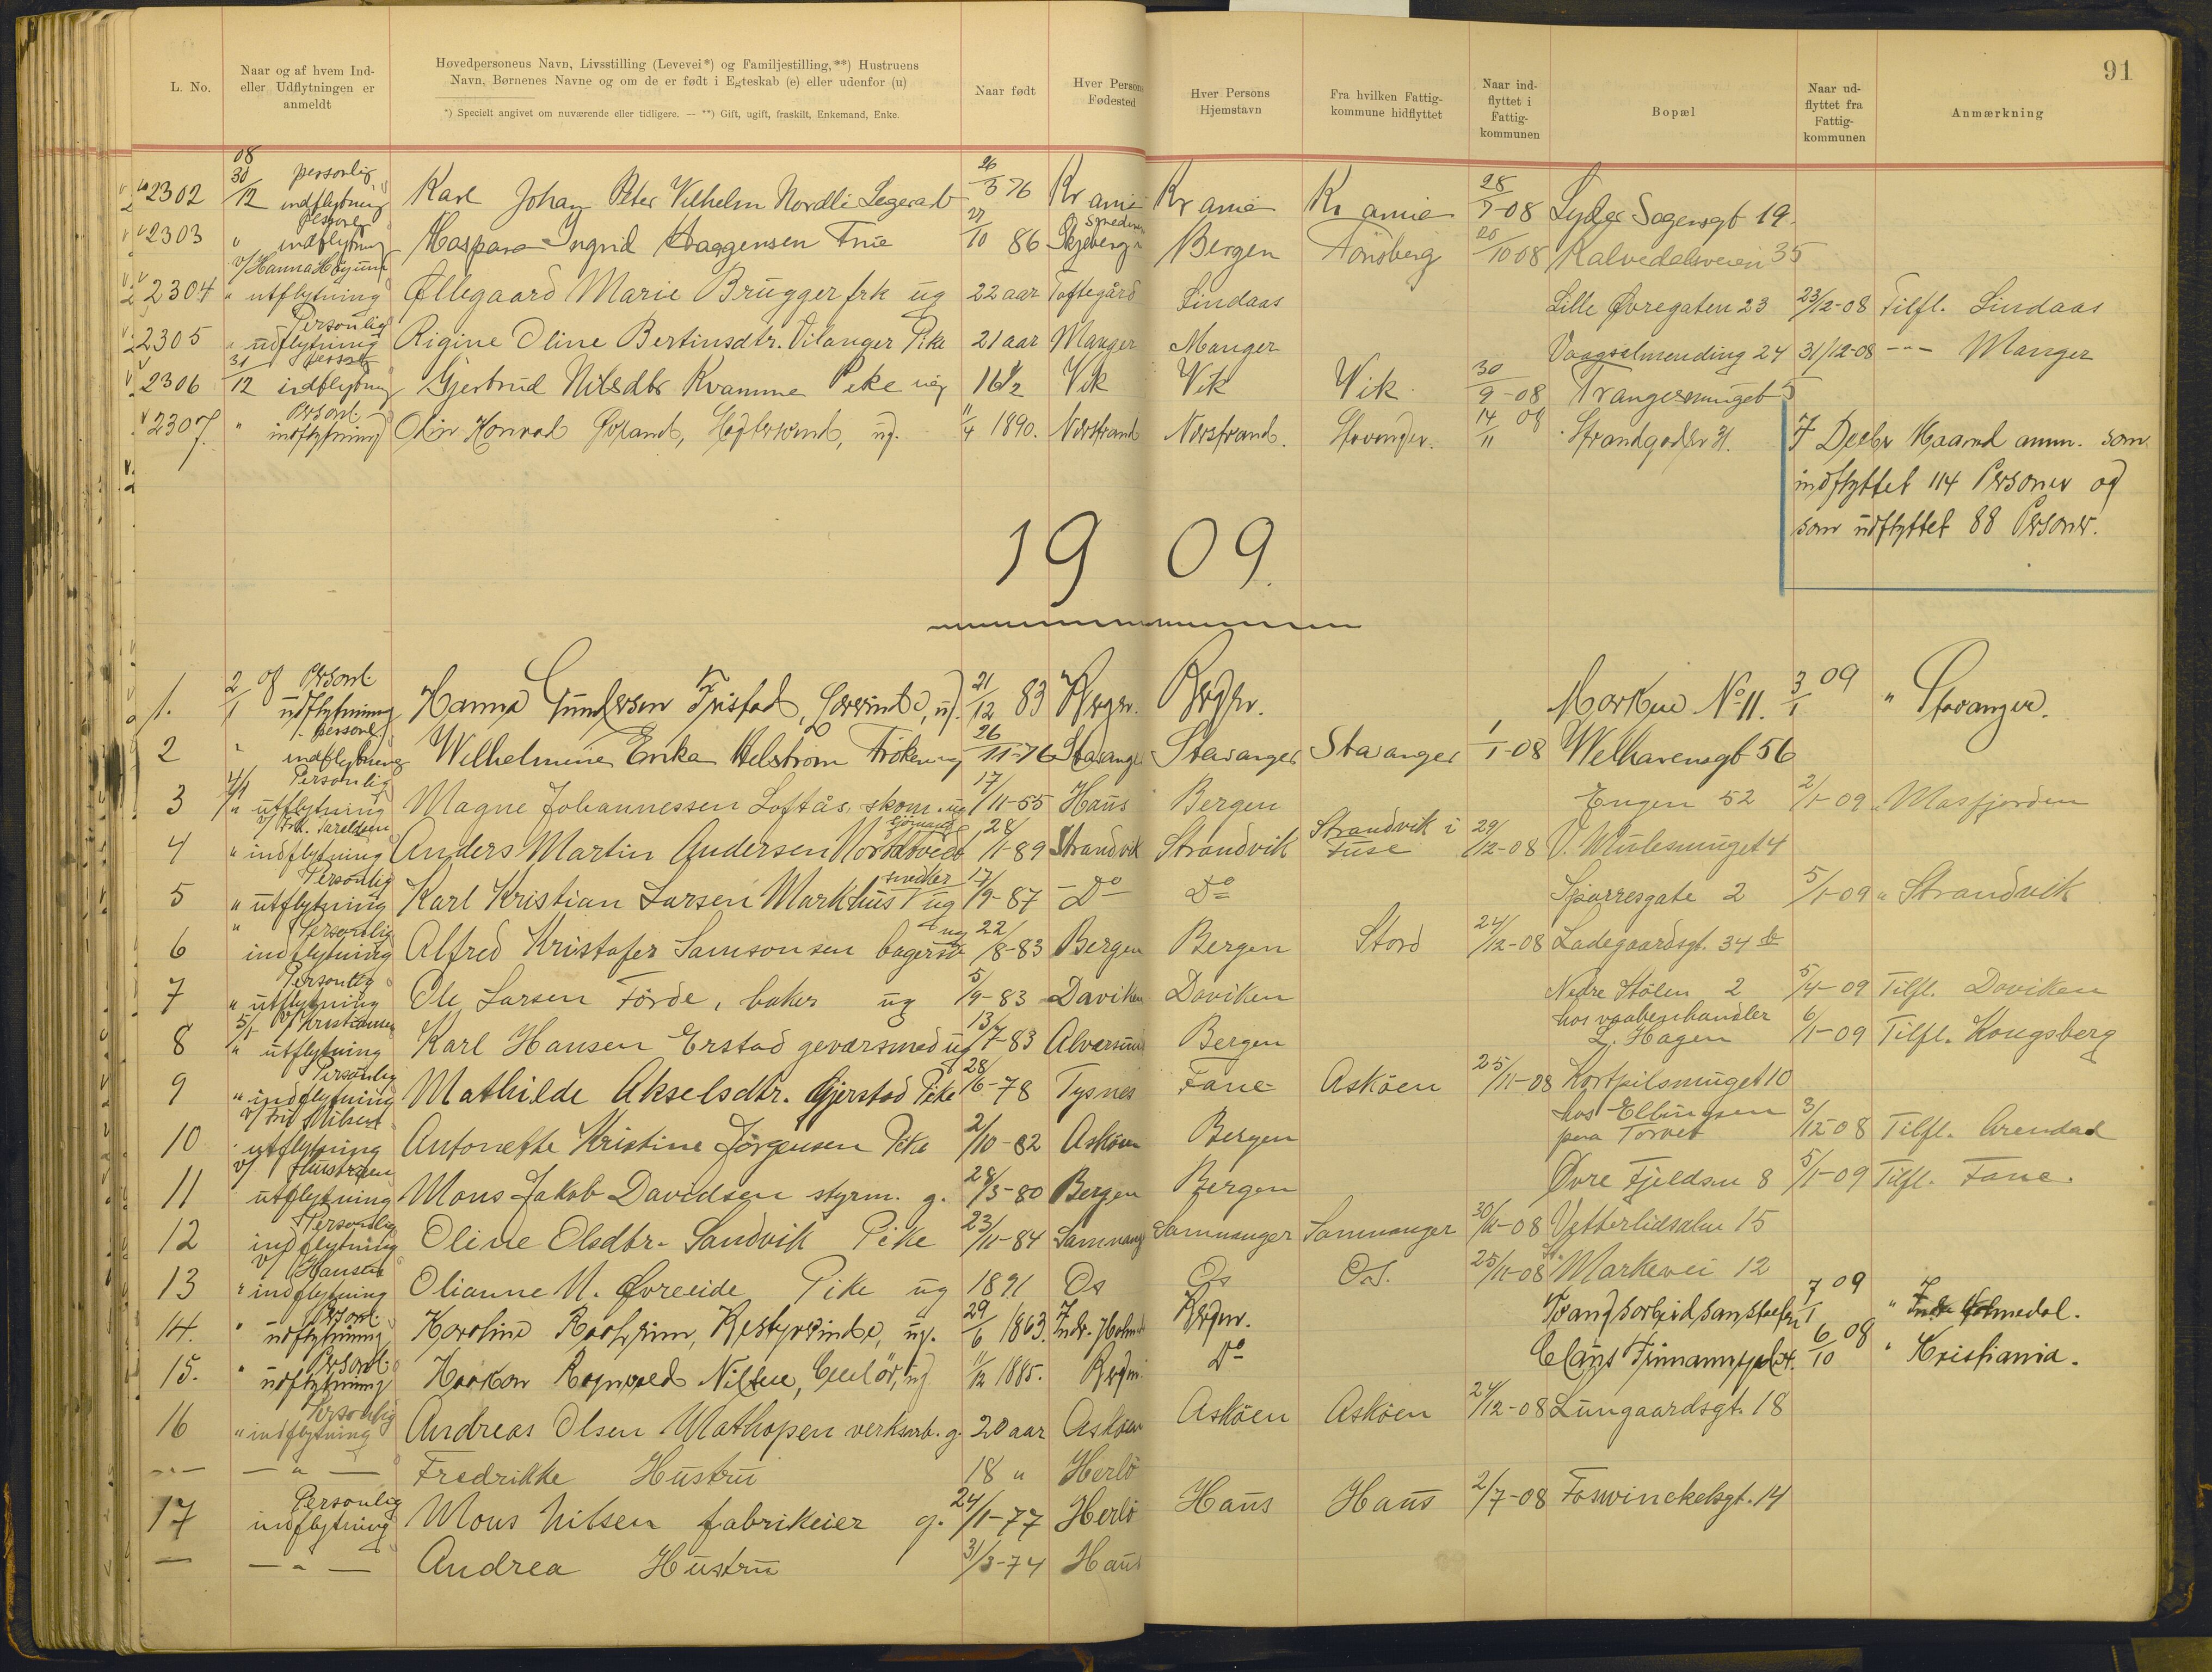 91
L. No. Naar og af hvem Ind- eller Udflytningen er anmeldt Hovedpersonens Navn, Livsstilling (Levevei*) og Familjestilling,**) Hustruens Navn, Børnenes Navne og om de er født i Egteskab (e) eller udenfor (u) Naar født Hver Persons Fødested Hver Persons Hjemstavn Fra hvilken Fattig-kommune hidflyttet Naar ind-flyttet i Fattig-kommunen Bopæl Naar ud-flyttet fra Fattig-kommunen Anmærkning
*) Specielt angivet om nuværende eller tidligere. — **) Gift, ugift, fraskilt, Enkemand, Enke.
2302 30/12 08 personlig indflytning Karl Johan Peter Vilhelm Nordli 26/3 76 Kr ania Kr ania Kr ania 28/7-08 Lyder Sagensgt 19
2303 " indflytning Kaspara Ingrid Haagensen Frue 27/10 86 Skjeberg Bergen Tönsberg 10 08 Kalvedalsveien 35
2304 " utflytning Øllegaard Marie Brügger frk ug 22 aar Toftegård Lindaas Lille Øvregaten 23 23/12-08 Tilfl. Lindaas
2305 Personlig " udflytning Rigine Oline Bertinsdtr. Vilanger Pike 21 aar Manger Manger Vaagsalmending 24 31/12-08 -"- Manger
2306 31/12 indflytning Gjertrud Nilsdtr Kvamme Pike ug 16½ Vik Vik Vik 30/9-08 Trangesmuget 5
2307. " Personl. indflytning Konrad ug. 11/4 1890. Nerstrand Nerstrand. Stavanger. 14/11 08 Strandgaden 31.
7 Decbr Maaned anm. som
indflyttet 114 Personer og
som udflyttet 88 Personer.
19 09.
1. 2/1 09 Personl. udflytning Hanna Gundersen ug. 21/12 83 Bergen. Bergen. Marken No 11. 3/1 09 " Stavanger.
2 " personl indflytning Wilhelmine Erika Helström Fröken ug 26/11-76 Stavanger Stavanger Stavanger 1/1-08 Welhavensgt 56
3 4/1 Personlig " utflytning Magne Johannessen Loftås. skom. ug 17/11-55 Haus Bergen Engen 52 2/1-09 " Masfjorden
4 " indflytning Anders Martin Andersen Nordtveit sjömand 28/1-89 Strandvik Strandvik Strandvik i Fuse 29/12-08 V. Muresmuget 4
5 Personlig " utflytning Karl Kristian Larsen Markhus snedker ug 17/9-87 Do Do Sparresgate 2 5/1-09 " Strandvik
6 " Personlig indflytning Alfred Kristofer Samsonsen bagersv ug 22/8-83 Bergen Bergen Stord 24/12-08 Ladegaardsgt. 34 b
7 Personlig " utflytning Ole Larsen Förde, baker ug 5/9-83 Daviken Daviken Nedre Stölen 2 5/4-09 Tilfl. Daviken
8 5/1 v/ Kristiansen " utflytning Karl Hansen Erstad geværsmed ug 13/7-83 Alversund Bergen hos vaabenhandler L. Hagen 6/1-09 Tilfl. Kongsberg
9 Personlig " indflytning Mathilde Akselsdtr. Gjerstad Pike 28/6-78 Tysnes Fane Asköen 25/11-08 Kortpilsmuget 10
10 " utflytning Antonette Kristine Jörgensen Pike 2/10-82 Asköen Bergen hos Ellingsen paa Torvet 3/12-08 Tilfl. Arendal
11 v/ Hustruen utflytning Mons Jakob Davidsen styrm. g. 28/3-80 Bergen Bergen Øvre Fjeldsm 8 5/1-09 Tilfl. Fane.
12 Personlig indflytning Oline Olsdtr. Sandvik Pike 23/11-84 Samnanger Samnanger Samnanger 30/11-08 Vetterlidsalm 15
13 " indflytning Olianne M. Øvreeide Pike ug 1891 Os Os Os. 25/11-08 St. Markevei 12
14. " Personl. udflytning Karoline Bestyrerinde, ug. 29/6 1863. Indr. Holmedal Bergen. Tvangsarbeidsanstalten 7/1 09 " Indre Holmedal.
15. " Personl. udflytning Haakon Ragnvald Nilsen, ug 11/12 1885. Bergen Do 6/10 08 " Kristiania.
16 Personlig " indflytning Andreas Olsen Mathopen verksarb. g. 20 aar Asköen Asköen Asköen 24/12-08 Lungaardsgt. 18
—"— —"— Fredrikke Hustru 18 " Herlö
17 Personlig indflytning Mons Nilsen fabrikeier g. 24/1-77 Herlö Haus Haus 2/7-08 Foswinckelsgt. 14
— —"— Andrea Hustru 31/3-74 Haus